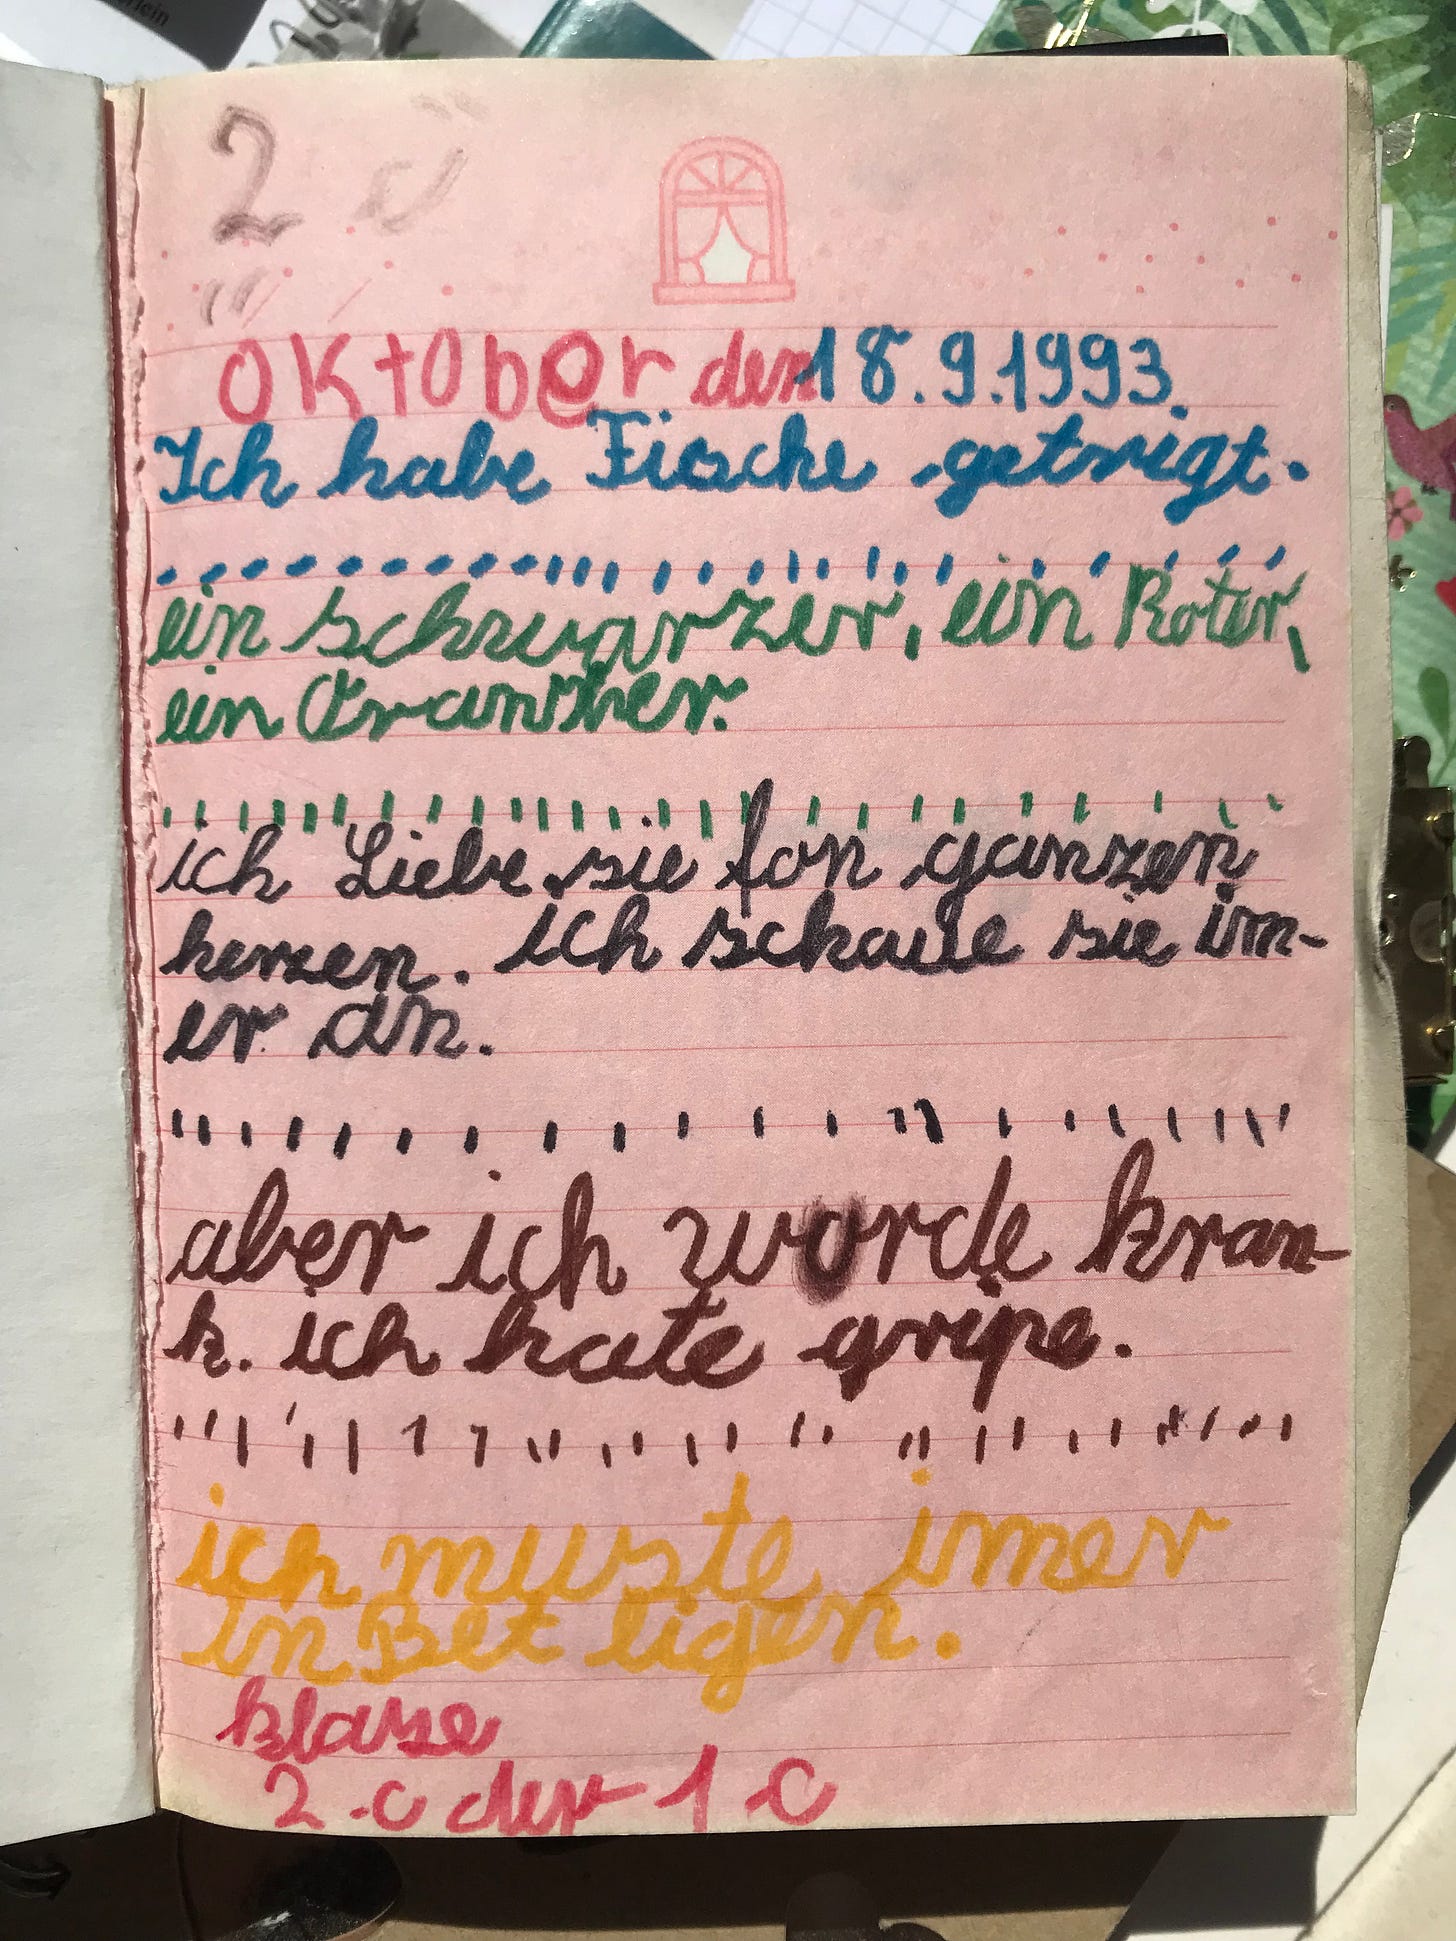 rlein
2 ö
Oktober den 18.9.1993.
Ich habe Fische getrigt.
ein schwarzer, ein Roter,
ein Orantsher.
ich Liebe sie fon ganzen
herzen. ich schaue sie im-
er an.
aber ich worde kran-
k. ich hate gripe.
ich muste imer
in Bet ligen.
klase
2.c der 1 c